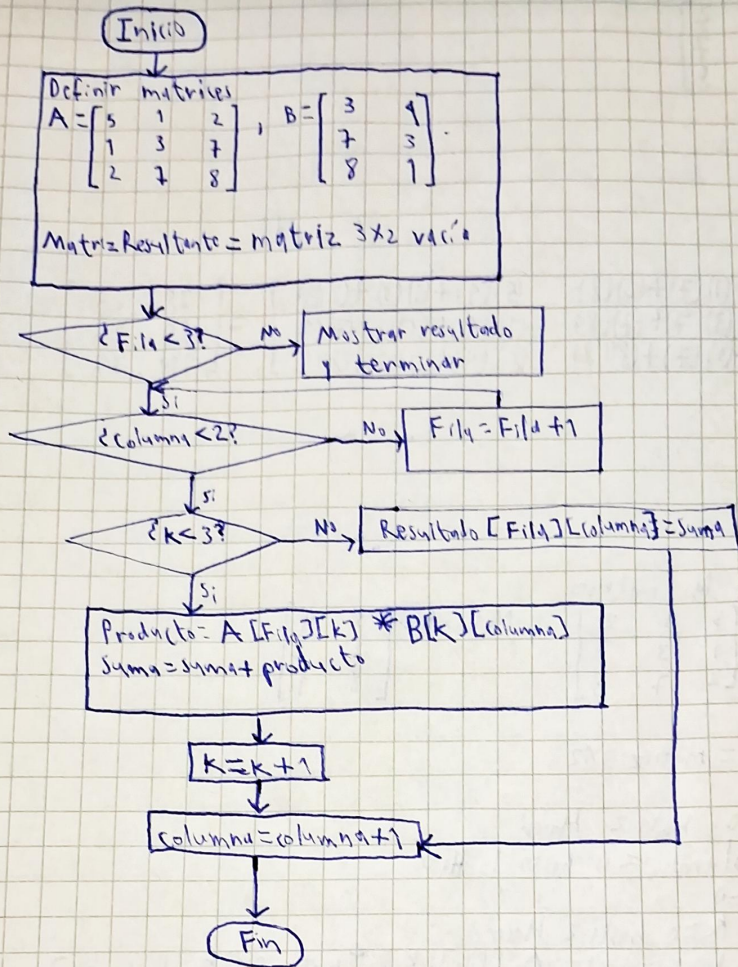 Inicio
Definir matrices
A = [5 1 2] , B = [3 4] .
[1 3 7] [7 3]
[2 7 8] [8 1]
MatrizResultante = matriz 3x2 vacía
¿Fila < 3?
No
Mostrar resultado
y terminar
Si
¿columna < 2?
No
Fila = Fila + 1
Si
¿K < 3?
No
Resultado [Fila][columna] = suma
Si
Producto = A [Fila][k] * B[K][columna]
suma = suma + producto
K = K + 1
columna = columna + 1
Fin